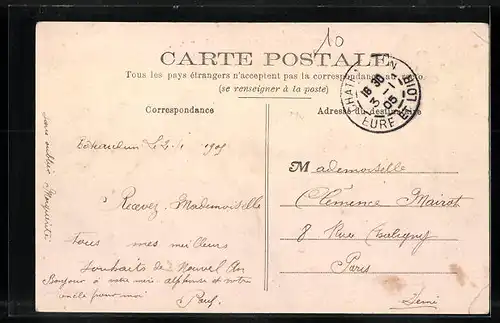 10
CARTE POSTALE
Tous les pays étrangers n'acceptent pas la correspondance au recto.
(se renseigner à la poste)
Correspondance
Adresse du destinataire
18 30
3 - 1
05
EURE ET LOIR
1905
Recevez Mademoiselle
Tous mes meilleurs
souhaits de Nouvel An
Bonjour à votre mère alphonse et votre
oncle pour moi
Paul
sans oublier Marguerite
Mademoiselle
Clemence Mairot
8 Rue Chaligny
Paris